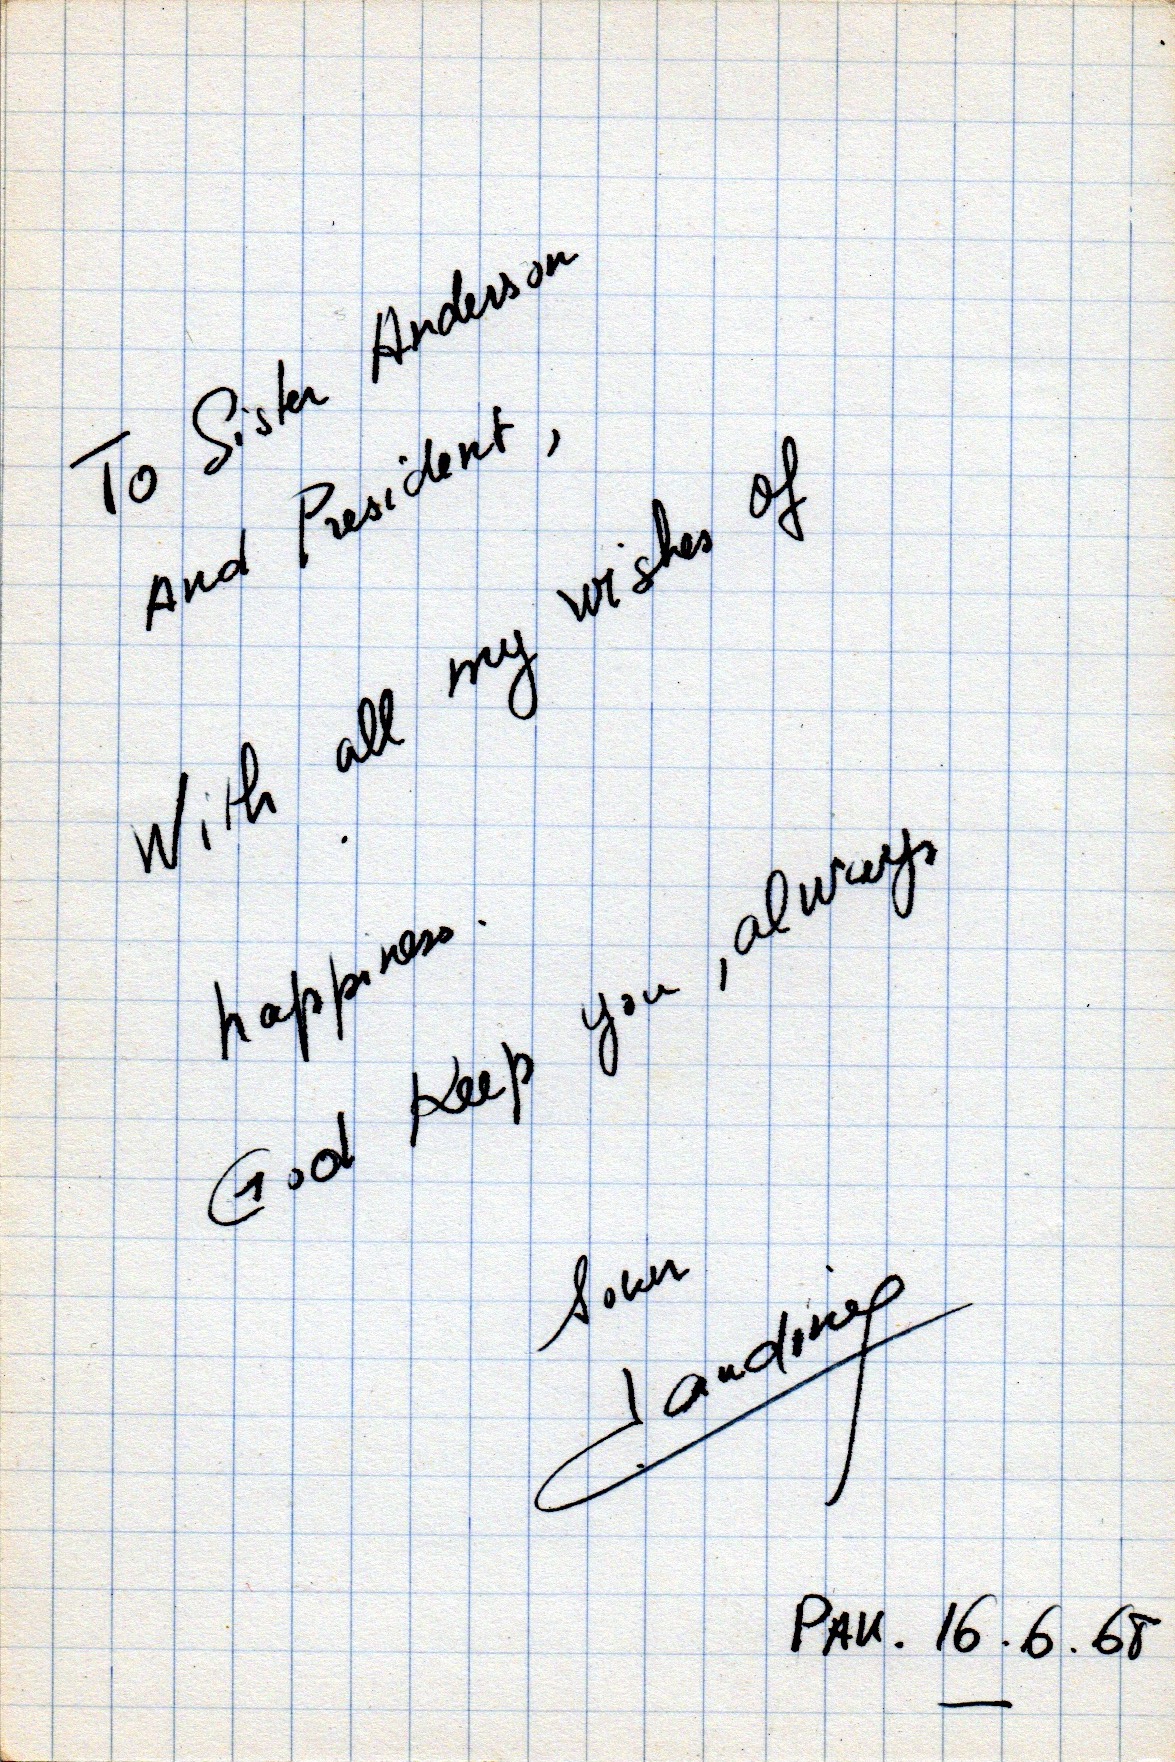 To Sister Anderson
And President,
With all my wishes of
happiness.
God Keep you, always
PAU. 16.6.68